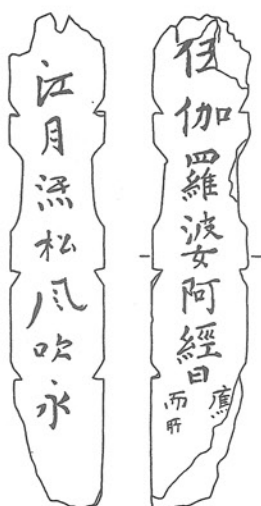 住伽羅波女阿經曰
應
而所
江月照松风吹永